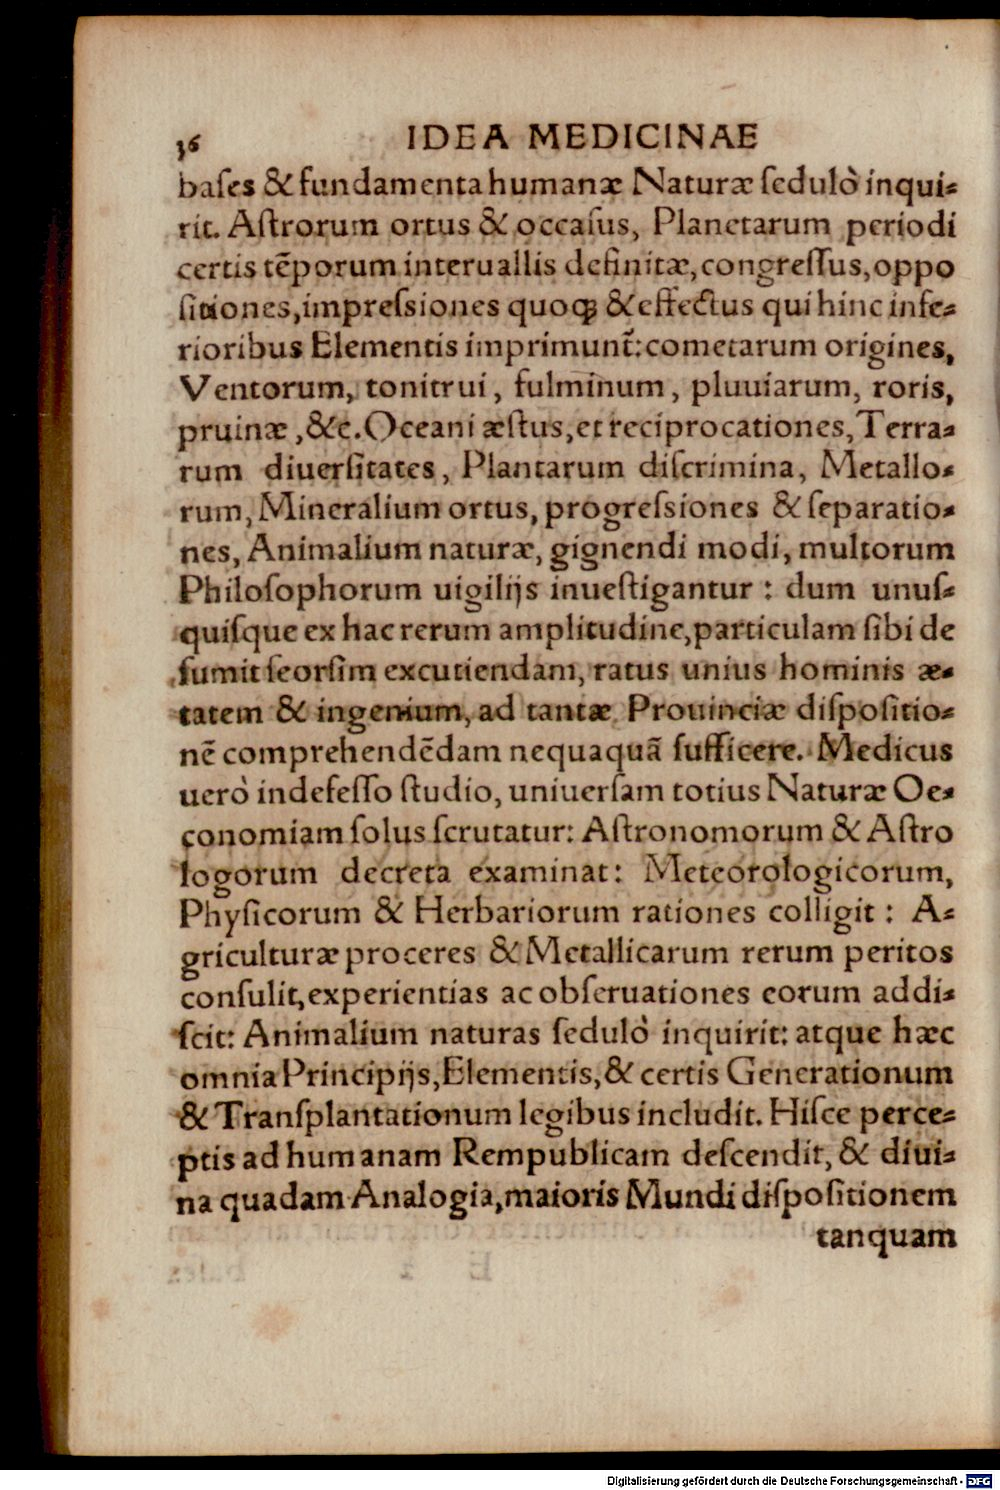 36 IDEA MEDICINAE
baſes & fundamenta humanæ Naturæ ſedulò inqui-
rit. Aſtrorum ortus & occaſus, Planetarum periodi
certis tẽporum interuallis definitæ, congreſſus, oppo
ſitiones, impreſsiones quoq; & effectus qui hinc infe-
rioribus Elementis imprimunt᷑: cometarum origines,
Ventorum, tonitrui, fulminum, pluuiarum, roris,
pruinæ, &c. Oceani æſtus, et reciprocationes, Terra-
rum diuerſitates, Plantarum diſcrimina, Metallo-
rum, Mineralium ortus, progreſsiones & ſeparatio-
nes, Animalium naturæ, gignendi modi, multorum
Philoſophorum uigilijs inueſtigantur: dum unuſ-
quiſque ex hac rerum amplitudine, particulam ſibi de
ſumit ſeorſim excutiendam, ratus unius hominis æ-
tatem & ingenium, ad tantæ Prouinciæ diſpoſitio-
nẽ comprehendẽdam nequaquã ſufficere. Medicus
uerò indefeſſo ſtudio, uniuerſam totius Naturæ Oe-
conomiam ſolus ſcrutatur: Aſtronomorum & Aſtro
logorum decreta examinat: Meteorologicorum,
Phyſicorum & Herbariorum rationes colligit: A-
griculturæ proceres & Metallicarum rerum peritos
conſulit, experientias ac obſeruationes eorum addi-
ſcit: Animalium naturas ſedulò inquirit: atque hæc
omnia Principijs, Elementis, & certis Generationum
& Tranſplantationum legibus includit. Hiſce perce-
ptis ad humanam Rempublicam deſcendit, & diui-
na quadam Analogia, maioris Mundi diſpoſitionem
tanquam
Digitalisierung gefördert durch die Deutsche Forschungsgemeinschaft - DFG